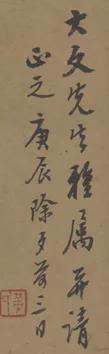 大文先生雅属并請
正之庚辰除夕前三日